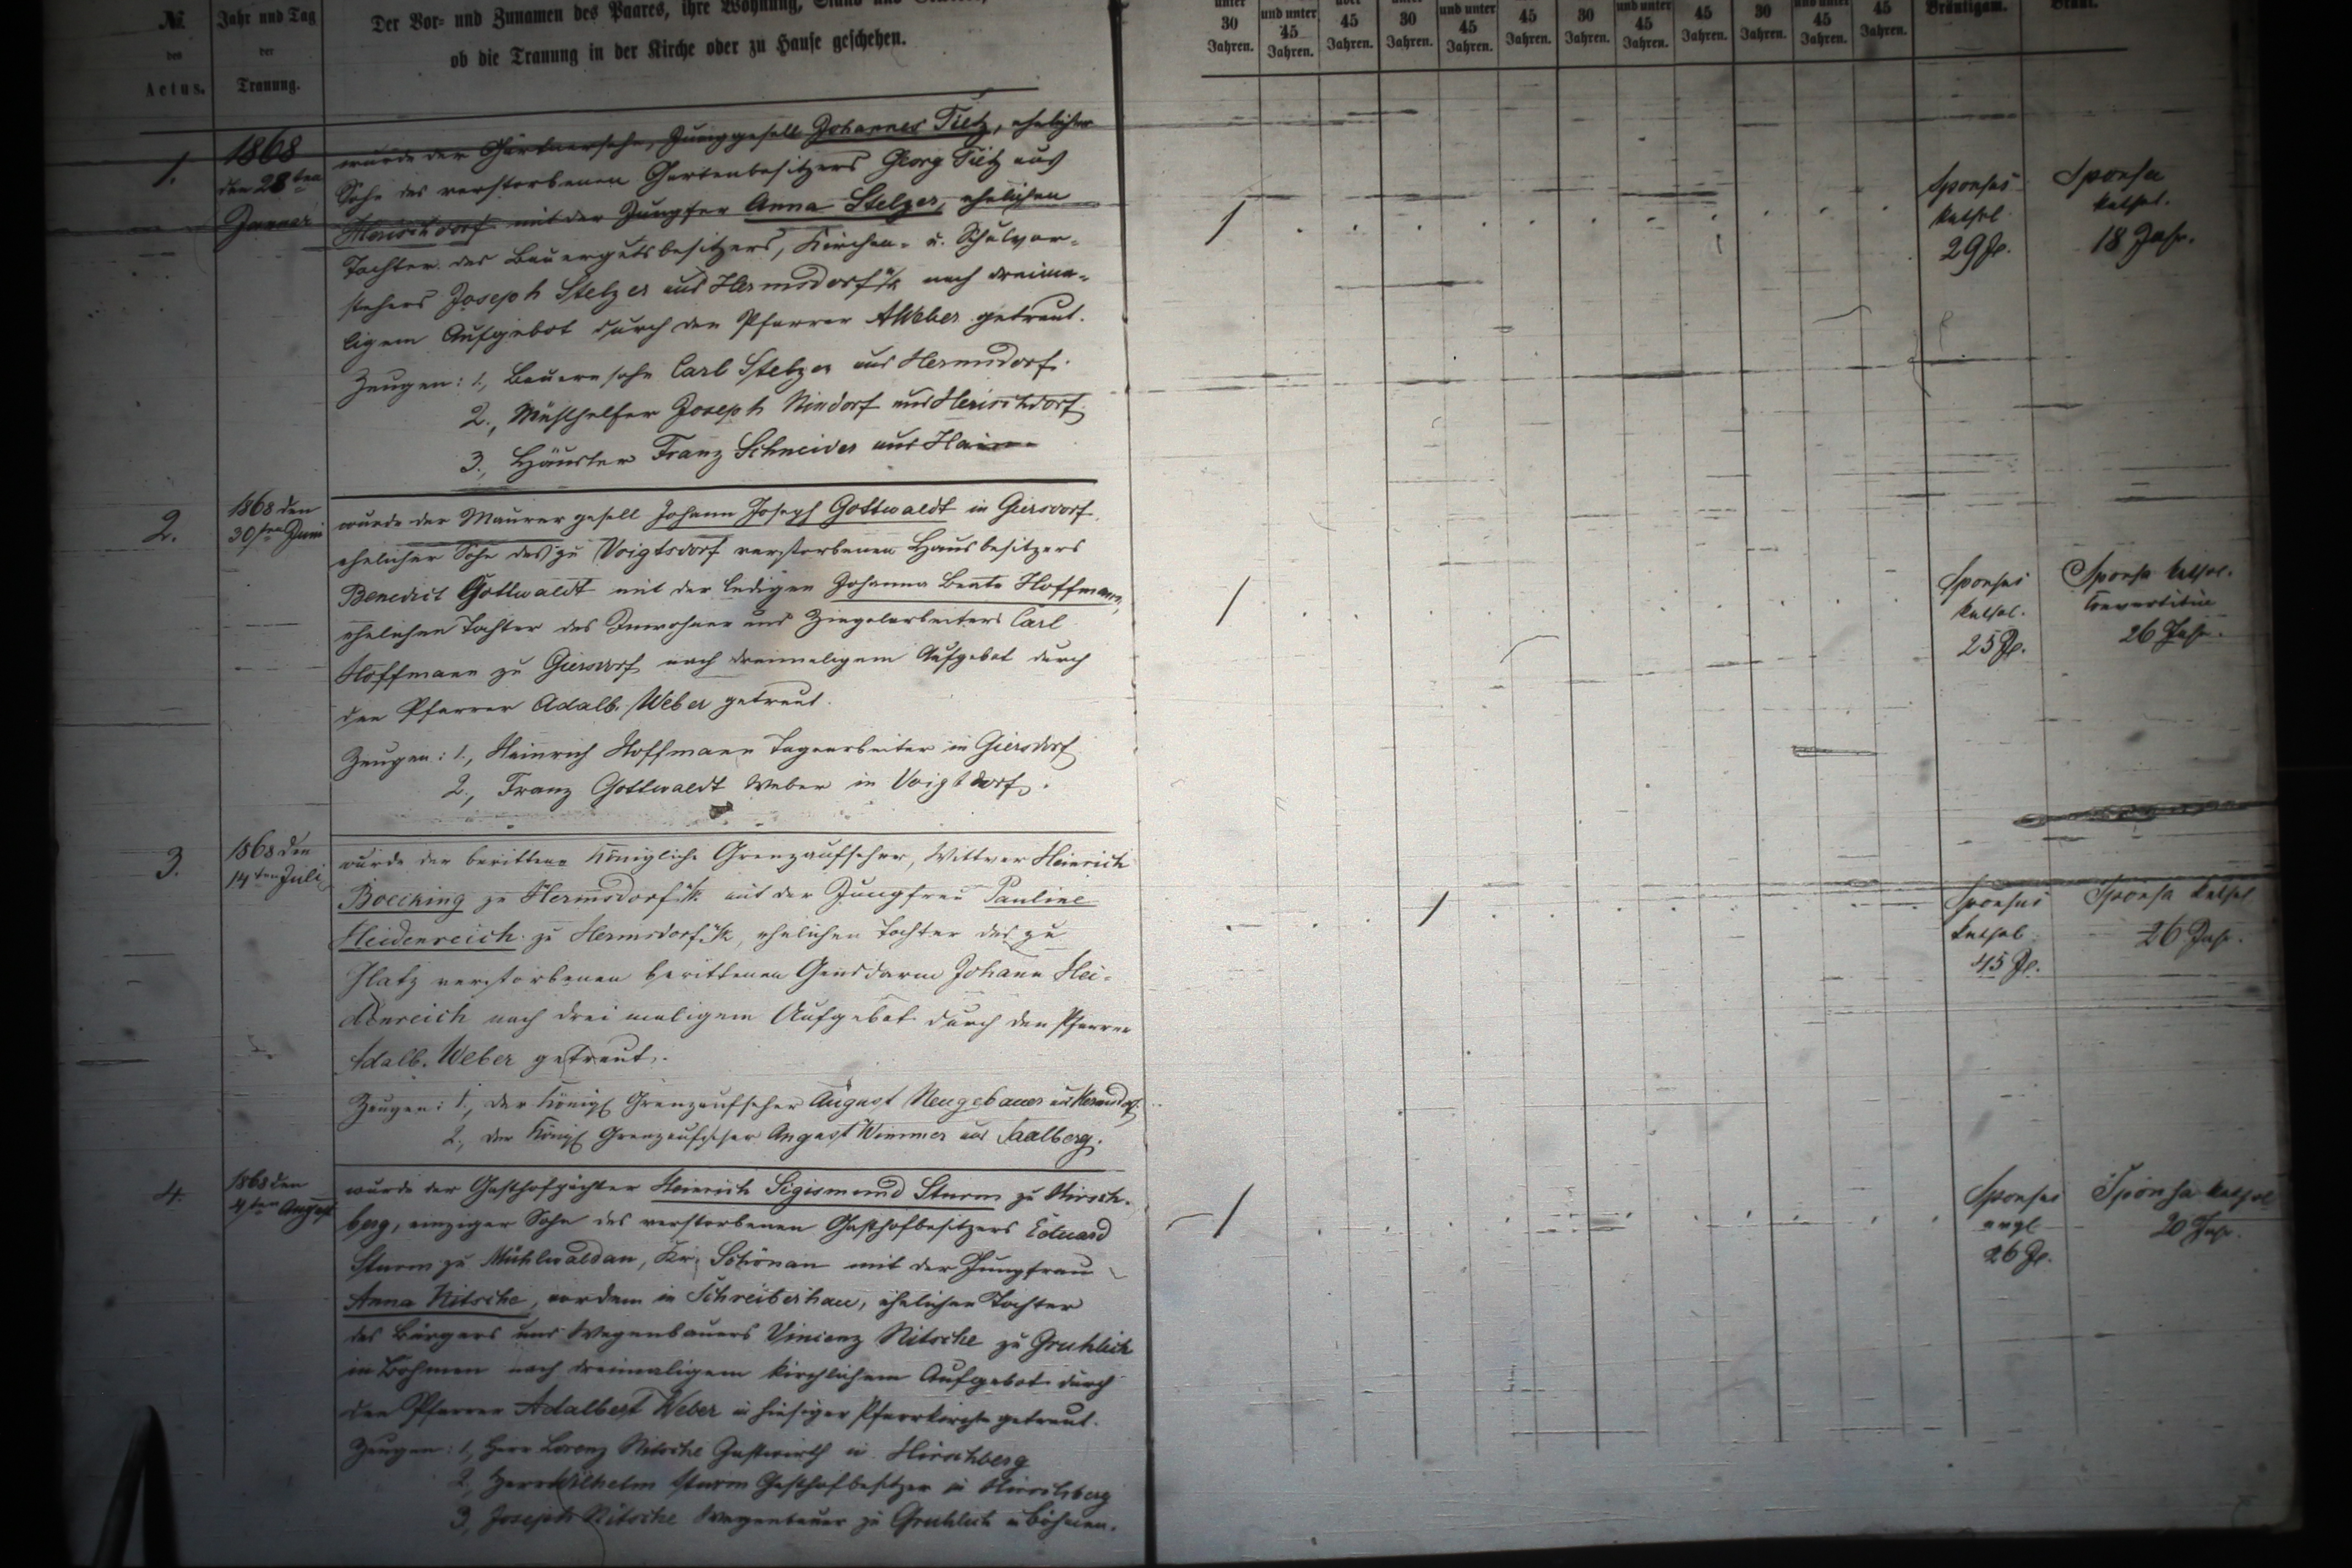 №
des
Actus.
Jahr und Tag
der
Trauung.
Der Vor- und Zunamen des Paares, ihre Wohnung, Stand und
ob die Trauung in der Kirche oder zu Hause geschehen.
unter 30 Jahren.
und unter 45 Jahren.
45 Jahren.
30 Jahren.
und unter 45 Jahren.
45 Jahren.
30 Jahren.
und unter 45 Jahren.
45 Jahren.
30 Jahren.
und unter 45 Jahren.
45 Jahren.
Bräutigam.
Braut.
1.
1868
den 28ten
Januar
wurde der Gärtnersohn, Junggesell Johannes Tietz, ehelicher
Sohn des verstorbenen Gartenbesitzers Georg Tietz aus
Herischdorf mit der Jungfer Anna Stelzer, ehelichen
Tochter des Bauergutsbesitzers, Kirchen- u. Schulvor-
stehers Joseph Stelzer aus Hermsdorf u/K nach dreima-
ligem Aufgebot durch den Pfarrer AWeber getraut.
Zeugen: 1., Bauernsohn Carl Stelzer aus Hermsdorf.
2., Joseph Rindorf aus Herischdorf.
3., Häusler Franz Schneider aus Hain
Sponsus
kathol.
29 J.
Sponsa
kathol.
18 Jahr.
2.
1868 den
30ten Juni
wurde der Maurergesell Johann Joseph Gottwaldt in Giersdorf,
ehelicher Sohn des zu Voigtsdorf verstorbenen Hausbesitzers
Benedict Gottwaldt mit der ledigen Johanna Beate Hoffmann,
ehelichen Tochter des Inwohner und Ziegelarbeiters Carl
Hoffmann zu Giersdorf nach dreimaligem Aufgebot durch
den Pfarrer Adalb. Weber getraut.
Zeugen: 1., Heinrich Hoffmann Tagearbeiter in Giersdorf
2., Franz Gottwaldt Weber in Voigtsdorf.
Sponsus
kathol.
25 J.
Sponsa kathol.
Convertitin
26 Jahr.
3.
1868 den
14ten Juli
wurde der berittene Königliche Grenzaufseher, Wittwer Heinrich
Boecking zu Hermsdorf u/K mit der Jungfrau Pauline
Heidenreich zu Hermsdorf u/K, ehelichen Tochter des zu
Glatz verstorbenen berittenen Gensdarm Johann Hei-
denreich nach dreimaligem Aufgebot durch den Pfarrer
Adalb. Weber getraut.
Zeugen: 1., der Königl Grenzaufseher August Neugebauer aus Hermsdorf.
2., der Königl Grenzaufseher August Wimmer aus Saalberg.
Sponsus
kathol
45 J.
Sponsa kathol
26 Jahr.
4.
1868 den
4ten August
wurde der Gasthofpächter Heinrich Sigismund Sturm zu Hirsch-
berg, einziger Sohn des verstorbenen Gasthofbesitzers Eduard
Sturm zu Mühlwaldau, Kr. Schönau mit der Jungfrau
Anna Nitsche, vordem in Schreiberhau, ehelichen Tochter
des Bürgers und Wagenbauers Vincenz Nitsche zu Gruhlich
in Böhmen nach dreimaligem kirchlichem Aufgebot durch
den Pfarrer Adalbert Weber in hiesiger Pfarrkirche getraut.
Zeugen: 1, Herr Lorenz Nitsche Gastwirth in Hirschberg
2, Herr Wilhelm Sturm Gasthofbesitzer in Hirschberg
3, Joseph Nitsche Wagenbauer zu Gruhlich in Böhmen.
Sponsus
evgl
26 J.
Sponsa kathol
20 Jahr.